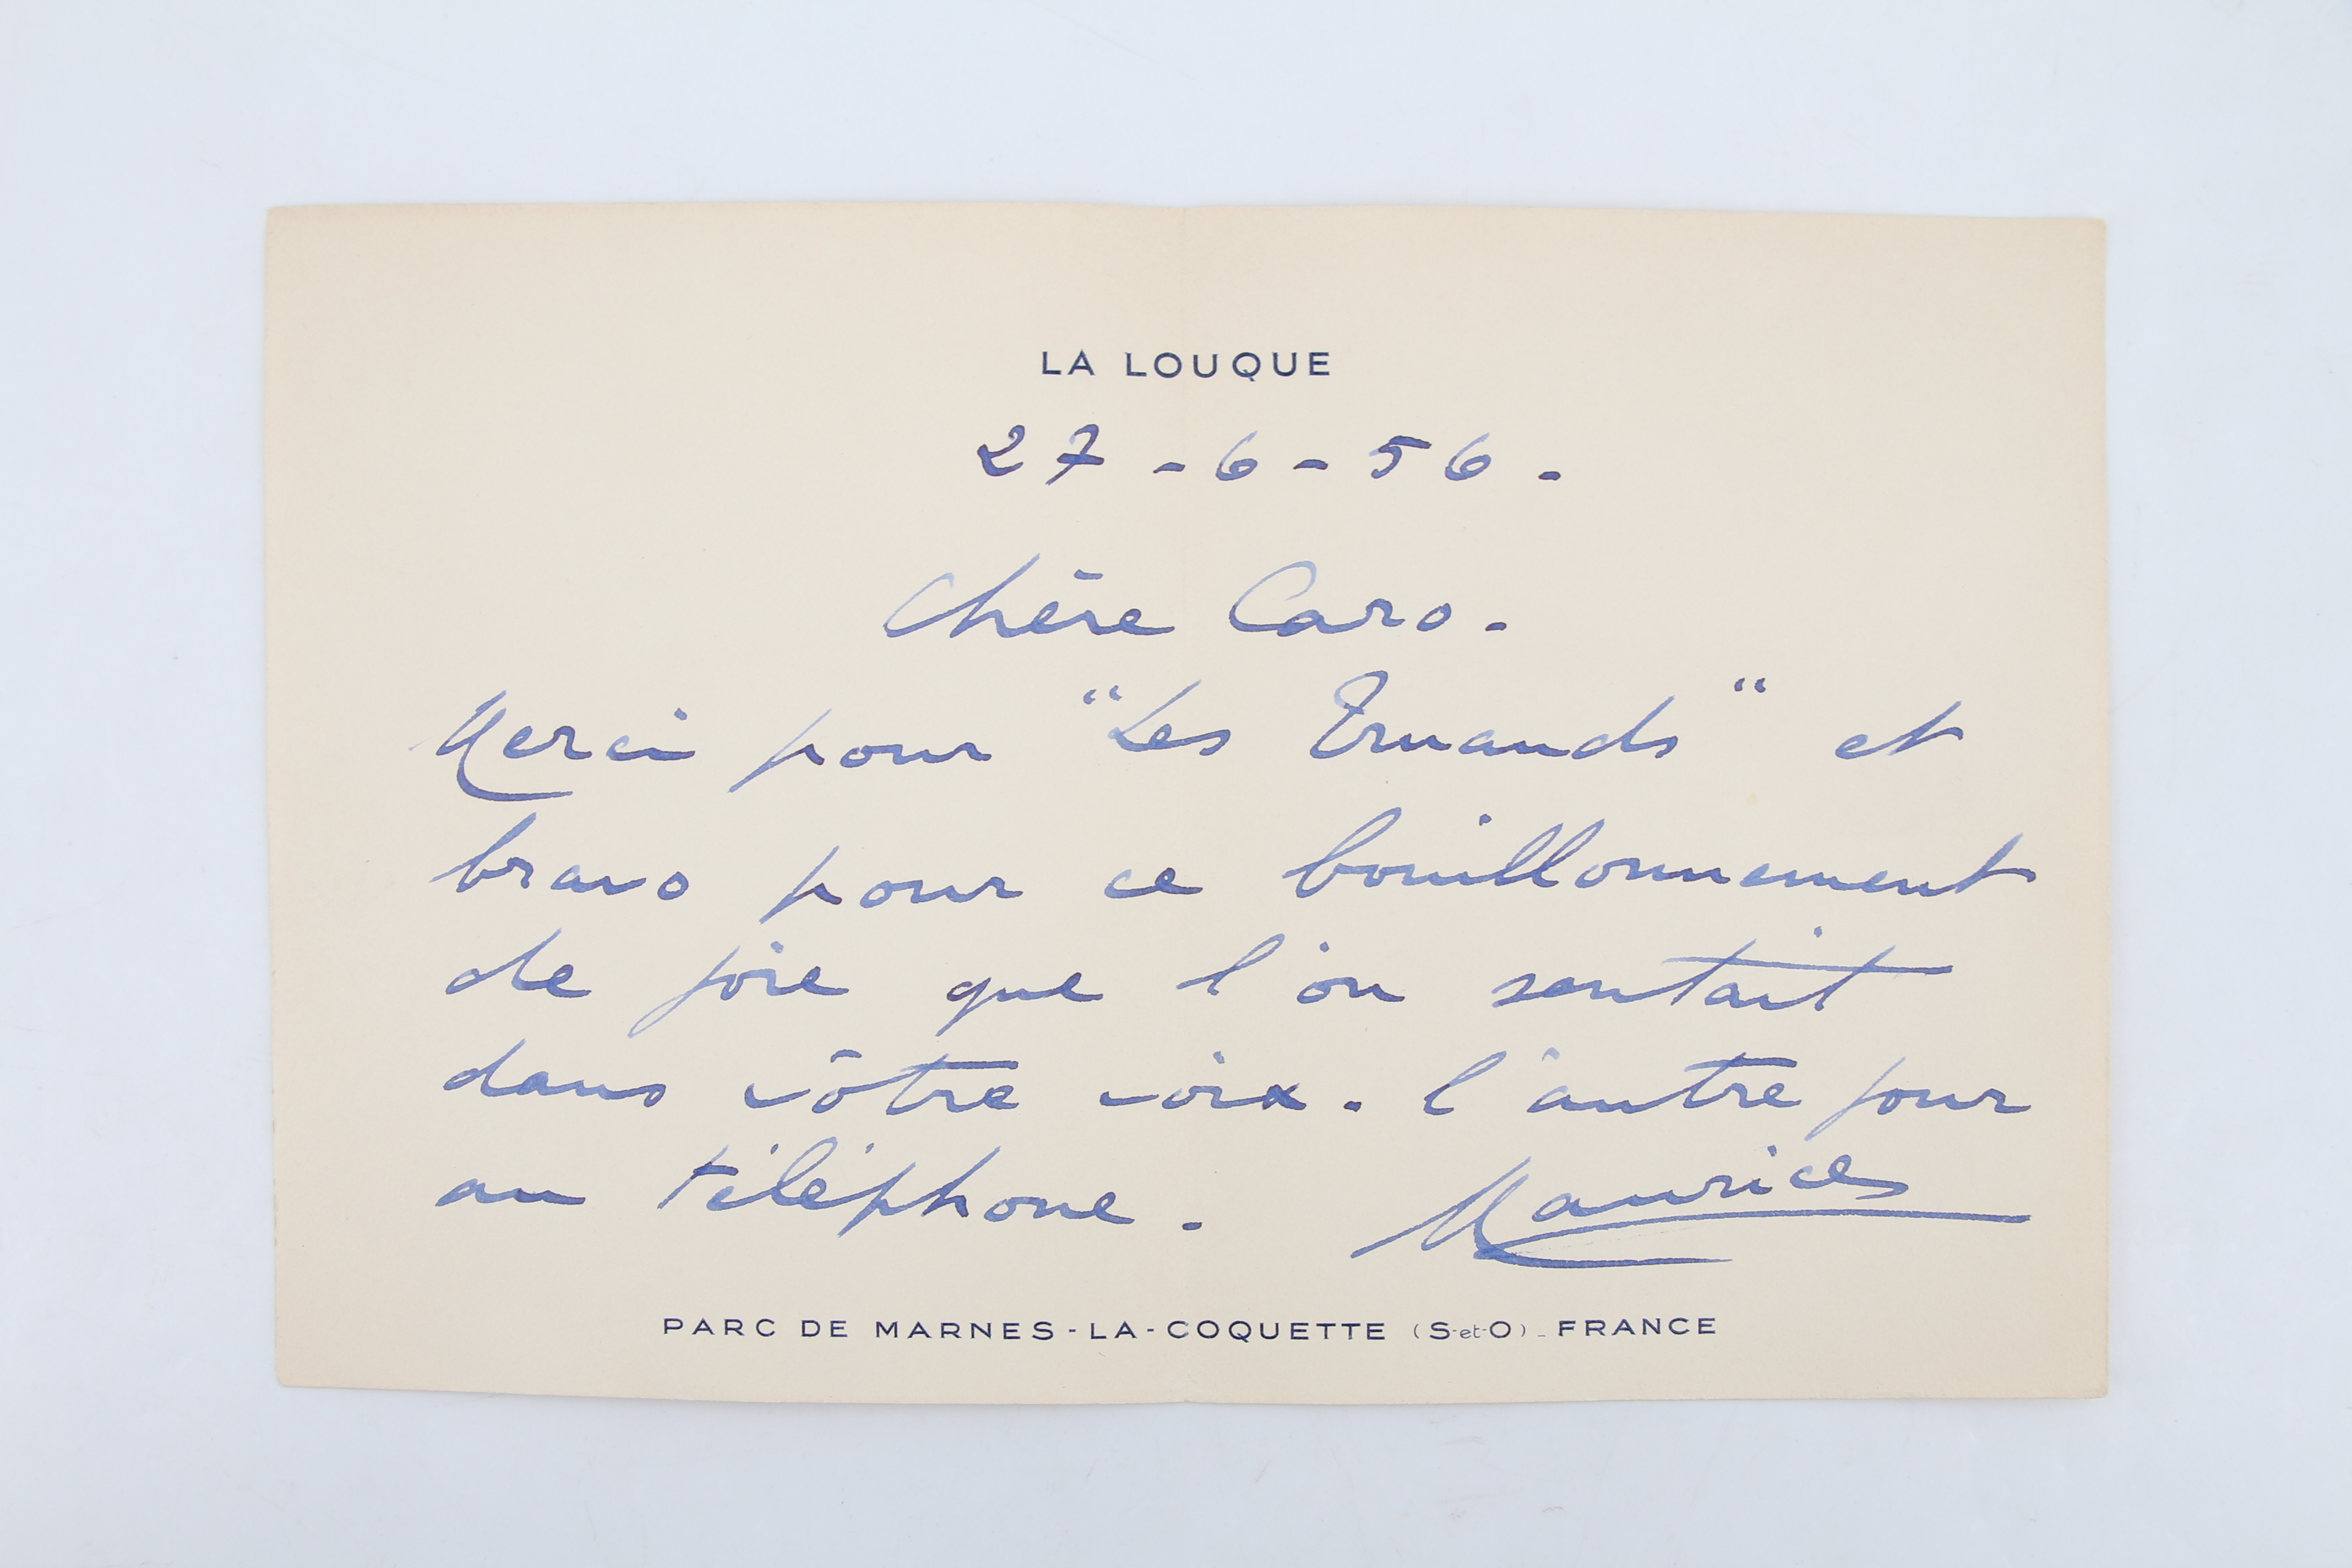 LA LOUQUE
27-6-56.
Chère Caro.
Merci pour "Les Truands" et
bravo pour ce bouillonnement
de joie que l'on sentait
dans vôtre voix. l'autre jour
au téléphone. Maurice
PARC DE MARNES-LA-COQUETTE (S-et-O)_FRANCE